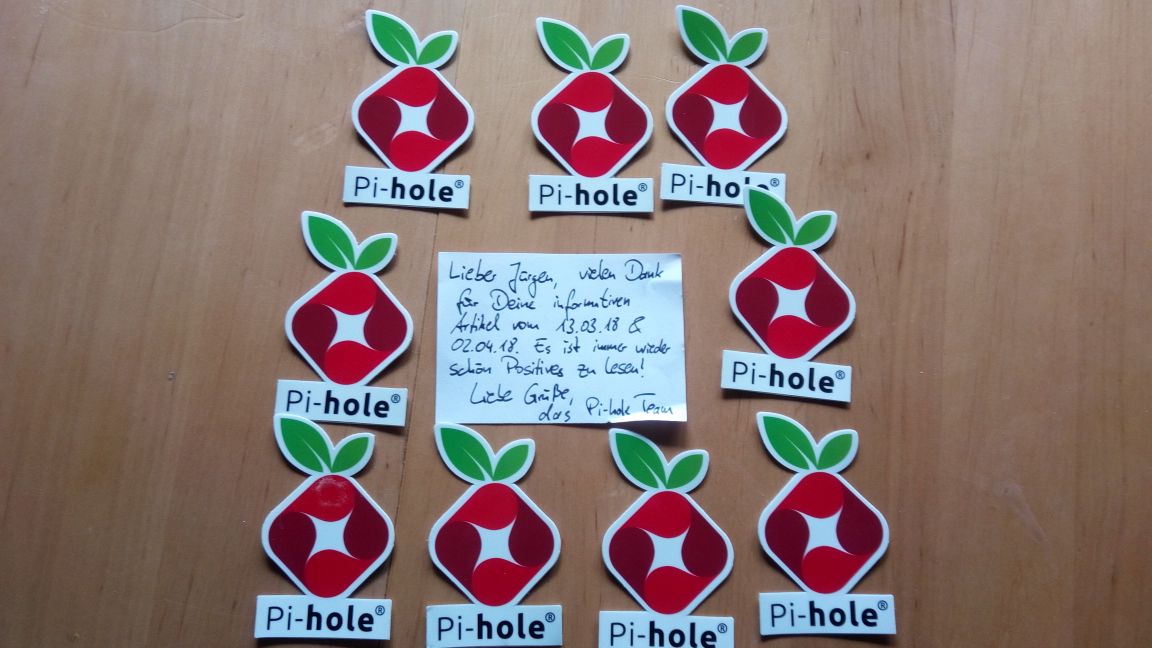 Pi-hole®
Pi-hole®
Pi-hole®
Pi-hole®
Lieber Jürgen, vielen Dank
für Deine informativen
Artikel vom 13.03.18 &
02.04.18. Es ist immer wieder
schön Positives zu lesen!
Liebe Grüße,
das Pi-hole Team
Pi-hole®
Pi-hole®
Pi-hole®
Pi-hole®
Pi-hole®